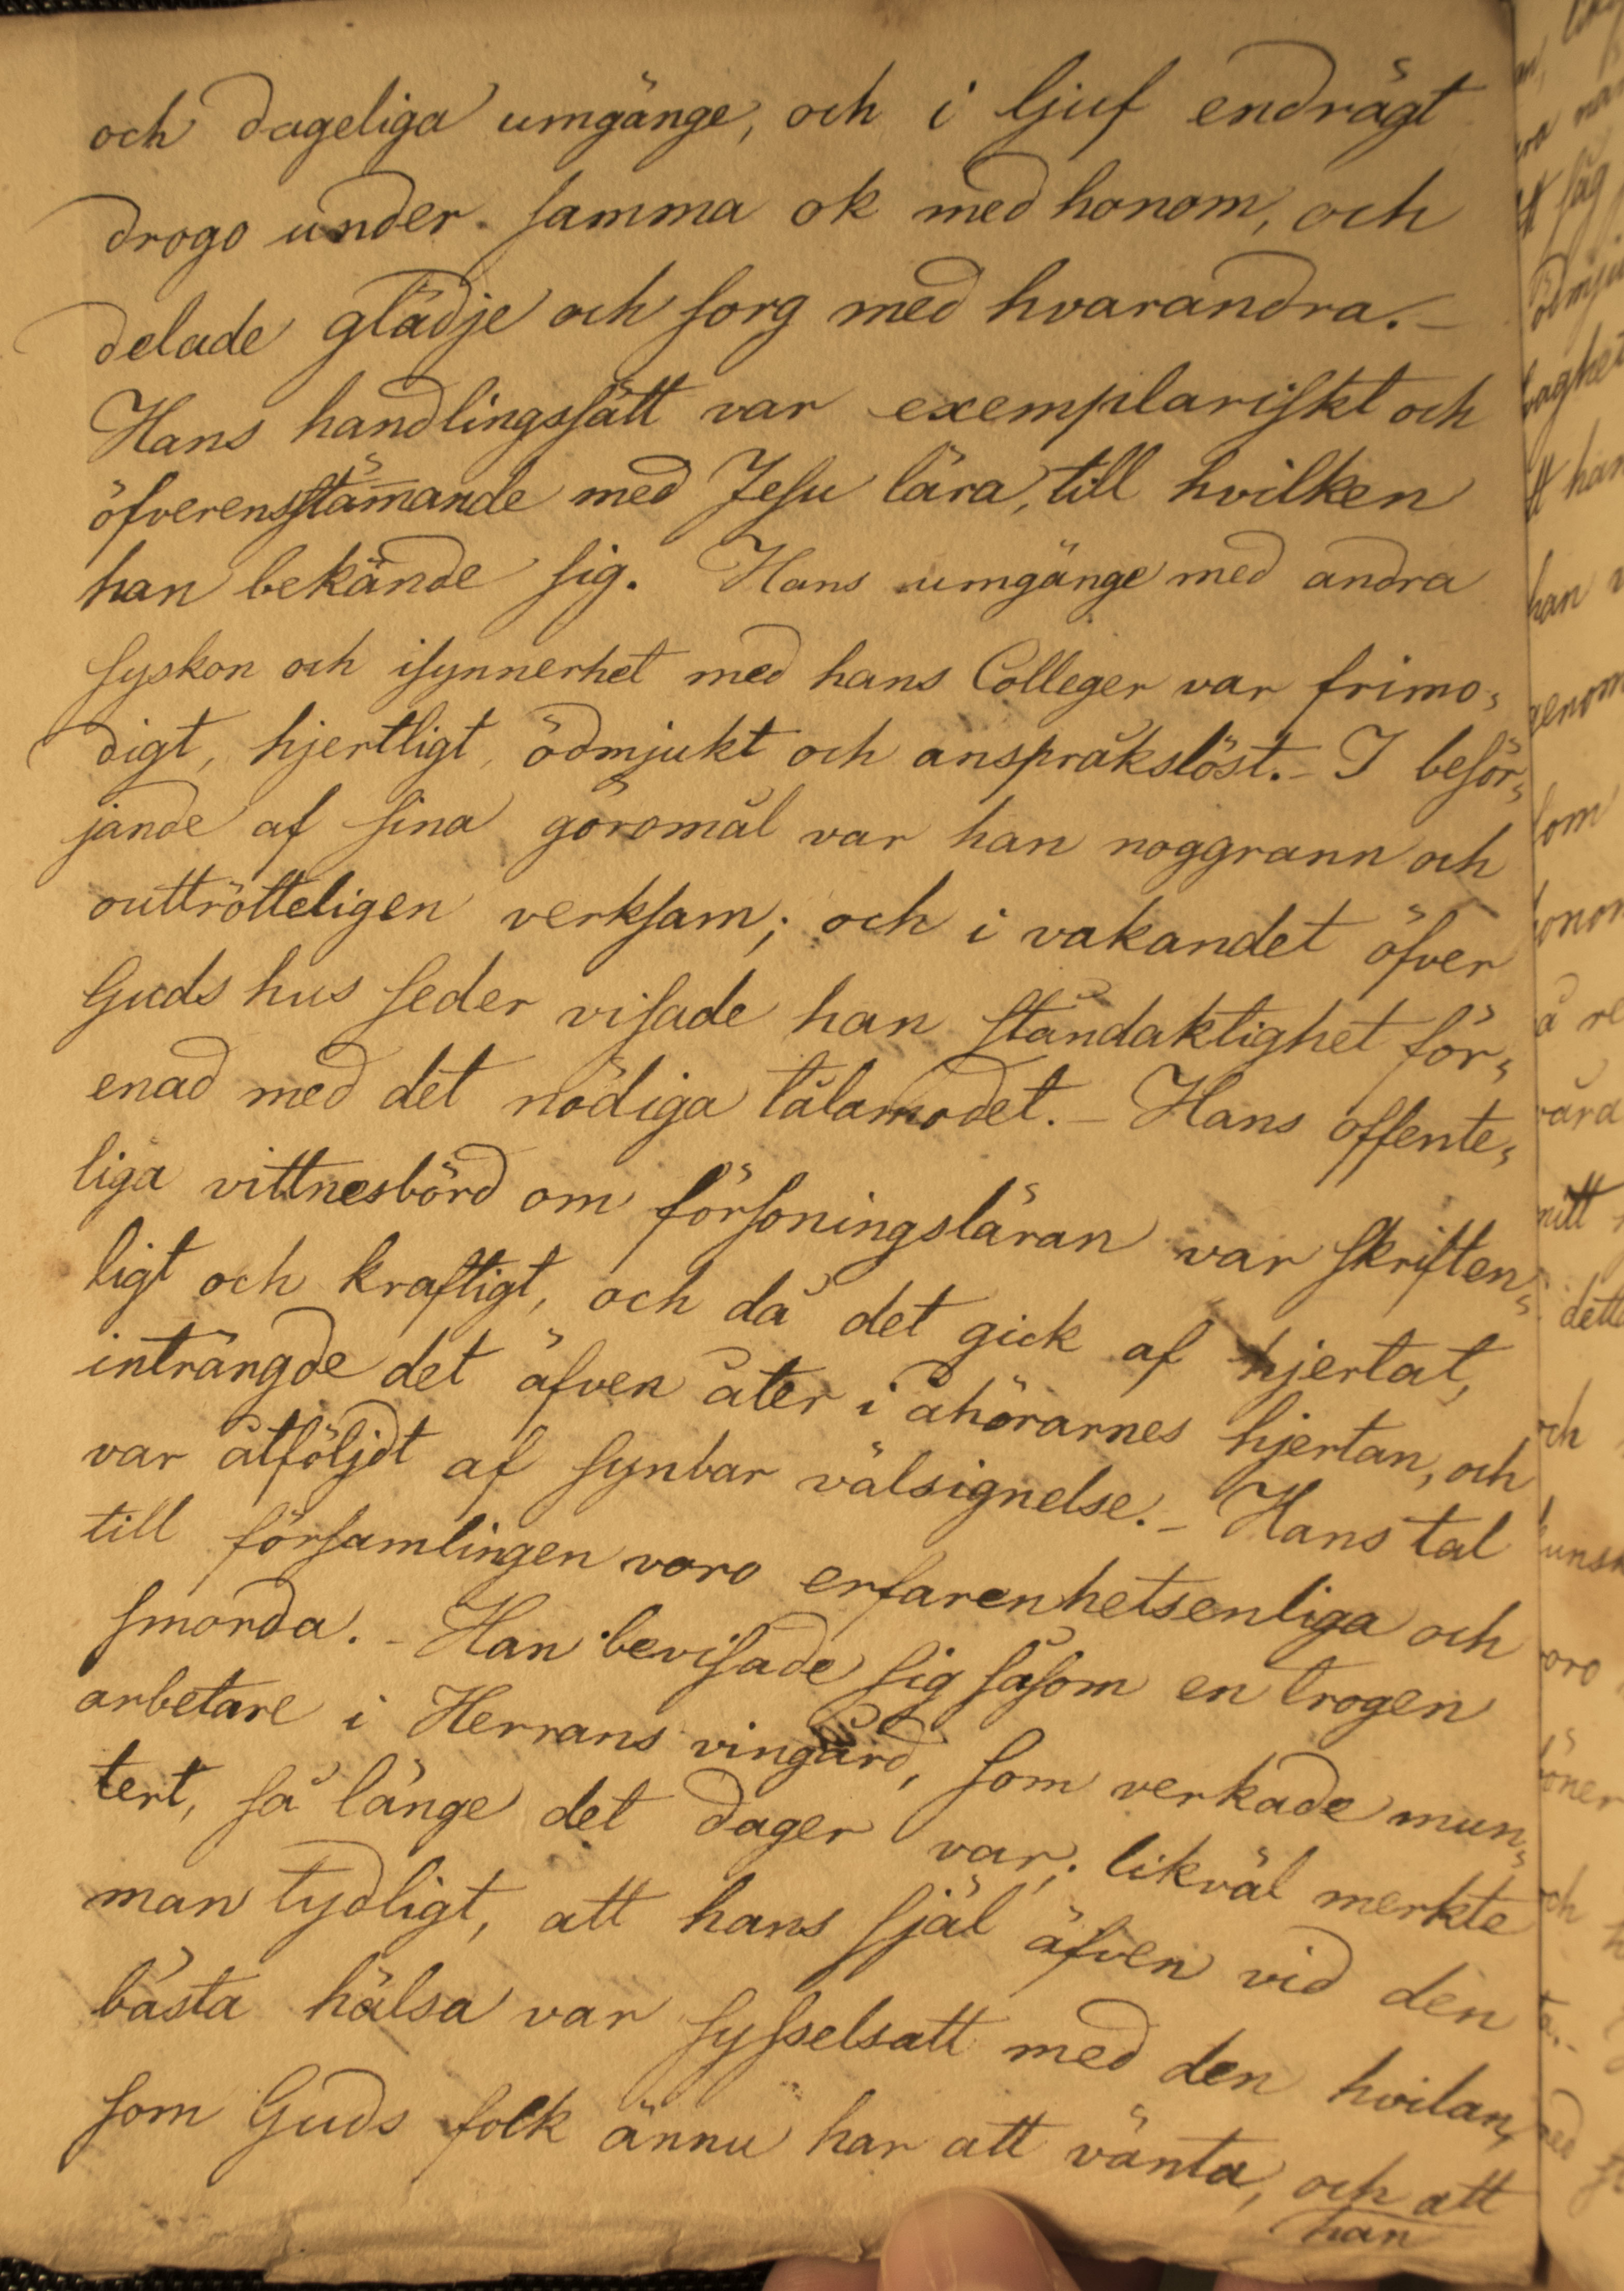 och dageliga umgänge, och i ljuf endrägt
drogo under samma ok med honom, och
delade glädje och sorg med hvarandra.–
Hans handlingssätt var exemplariskt och
öfverensstam̄ande med Jesu lära, till hvilken
han bekände sig. Hans umgänge med andra
syskon och isynnerhet med hans Colleger var frimo⸗
digt, hjertligt, ödmjukt och anspråkslöst.– I besör⸗
jande af sina göromål var han noggrann och
outtrötteligen verksam; och i vakandet öfver
Guds hus seder visade han ståndaktighet för⸗
enad med det nödiga tålamodet.– Hans offente⸗
liga vittnesbörd om försoningsläran var skriften⸗
ligt och kraftigt, och då det gick af hjertat,
inträngde det äfven åter i åhörarnes hjertan, och
var åtföljdt af synbar välsignelse.– Hans tal
till församlingen voro erfarenhetsenliga och
smorda.– Han bevisade sig såsom en trogen
arbetare i Herrans vingård, som verkade mun⸗
tert, så länge det dager var; likväl merkte
man tydligt, att hans själ äfven vid den
bästa hälsa var sysselsatt med den hvilan,
som Guds folk ännu har att vänta, och att
han